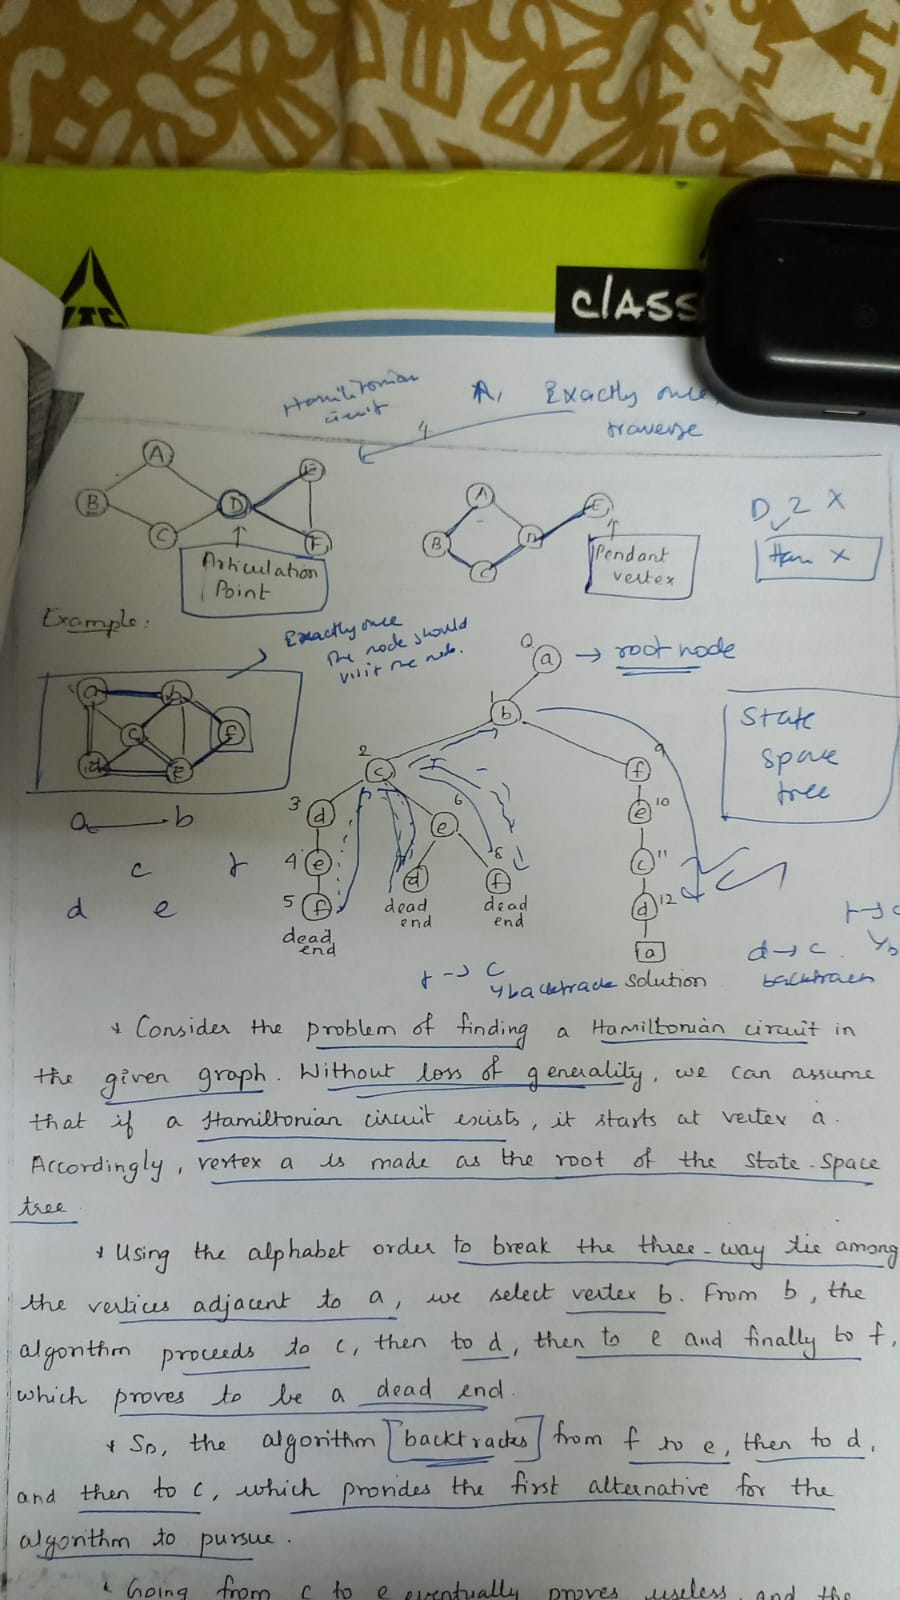 ITC
CLASS
Hamiltonian
circuit
A, Exactly once
traverse
4
A
B
C
D
E
F
Articulation
Point
A
B
C
D
E
Pendant
vertex
D 2 X
Ham X
Example:
Exactly once
the node should
visit the node.
a
b
c
d
e
f
a b
c f
d e
0
a → root node
1
b
2
c
3
d
4
e
5
f
dead
end
6
e
d
dead
end
8
f
dead
end
9
f
e 10
c 11
d 12
a
solution
State
space
tree
f → c
backtrack
d → c
backtrack
* Consider the problem of finding a Hamiltonian circuit in
the given graph. Without loss of generality, we can assume
that if a Hamiltonian circuit exists, it starts at vertex a.
Accordingly, vertex a is made as the root of the State-Space
tree
* Using the alphabet order to break the three-way tie among
the vertices adjacent to a, we select vertex b. From b, the
algorithm proceeds to c, then to d, then to e and finally to f,
which proves to be a dead end.
* So, the algorithm [backtracks] from f to e, then to d,
and then to c, which provides the first alternative for the
algorithm to pursue.
* Going from c to e eventually proves useless, and the